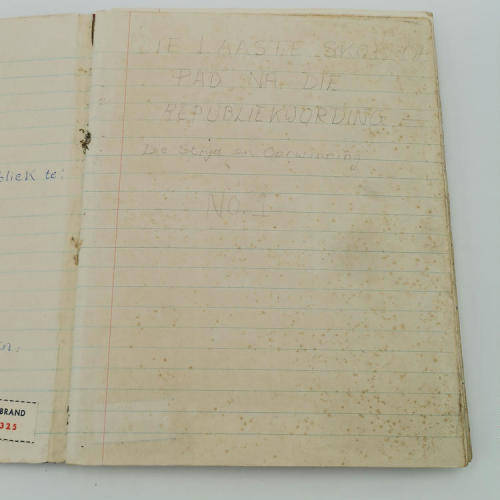 bliek te:
en.
BRAND
325
DIE LAASTE SKOF OP
PAD NA DIE
REPUBLIEKWORDING
Die Stryd en Oorwinning
No. 1